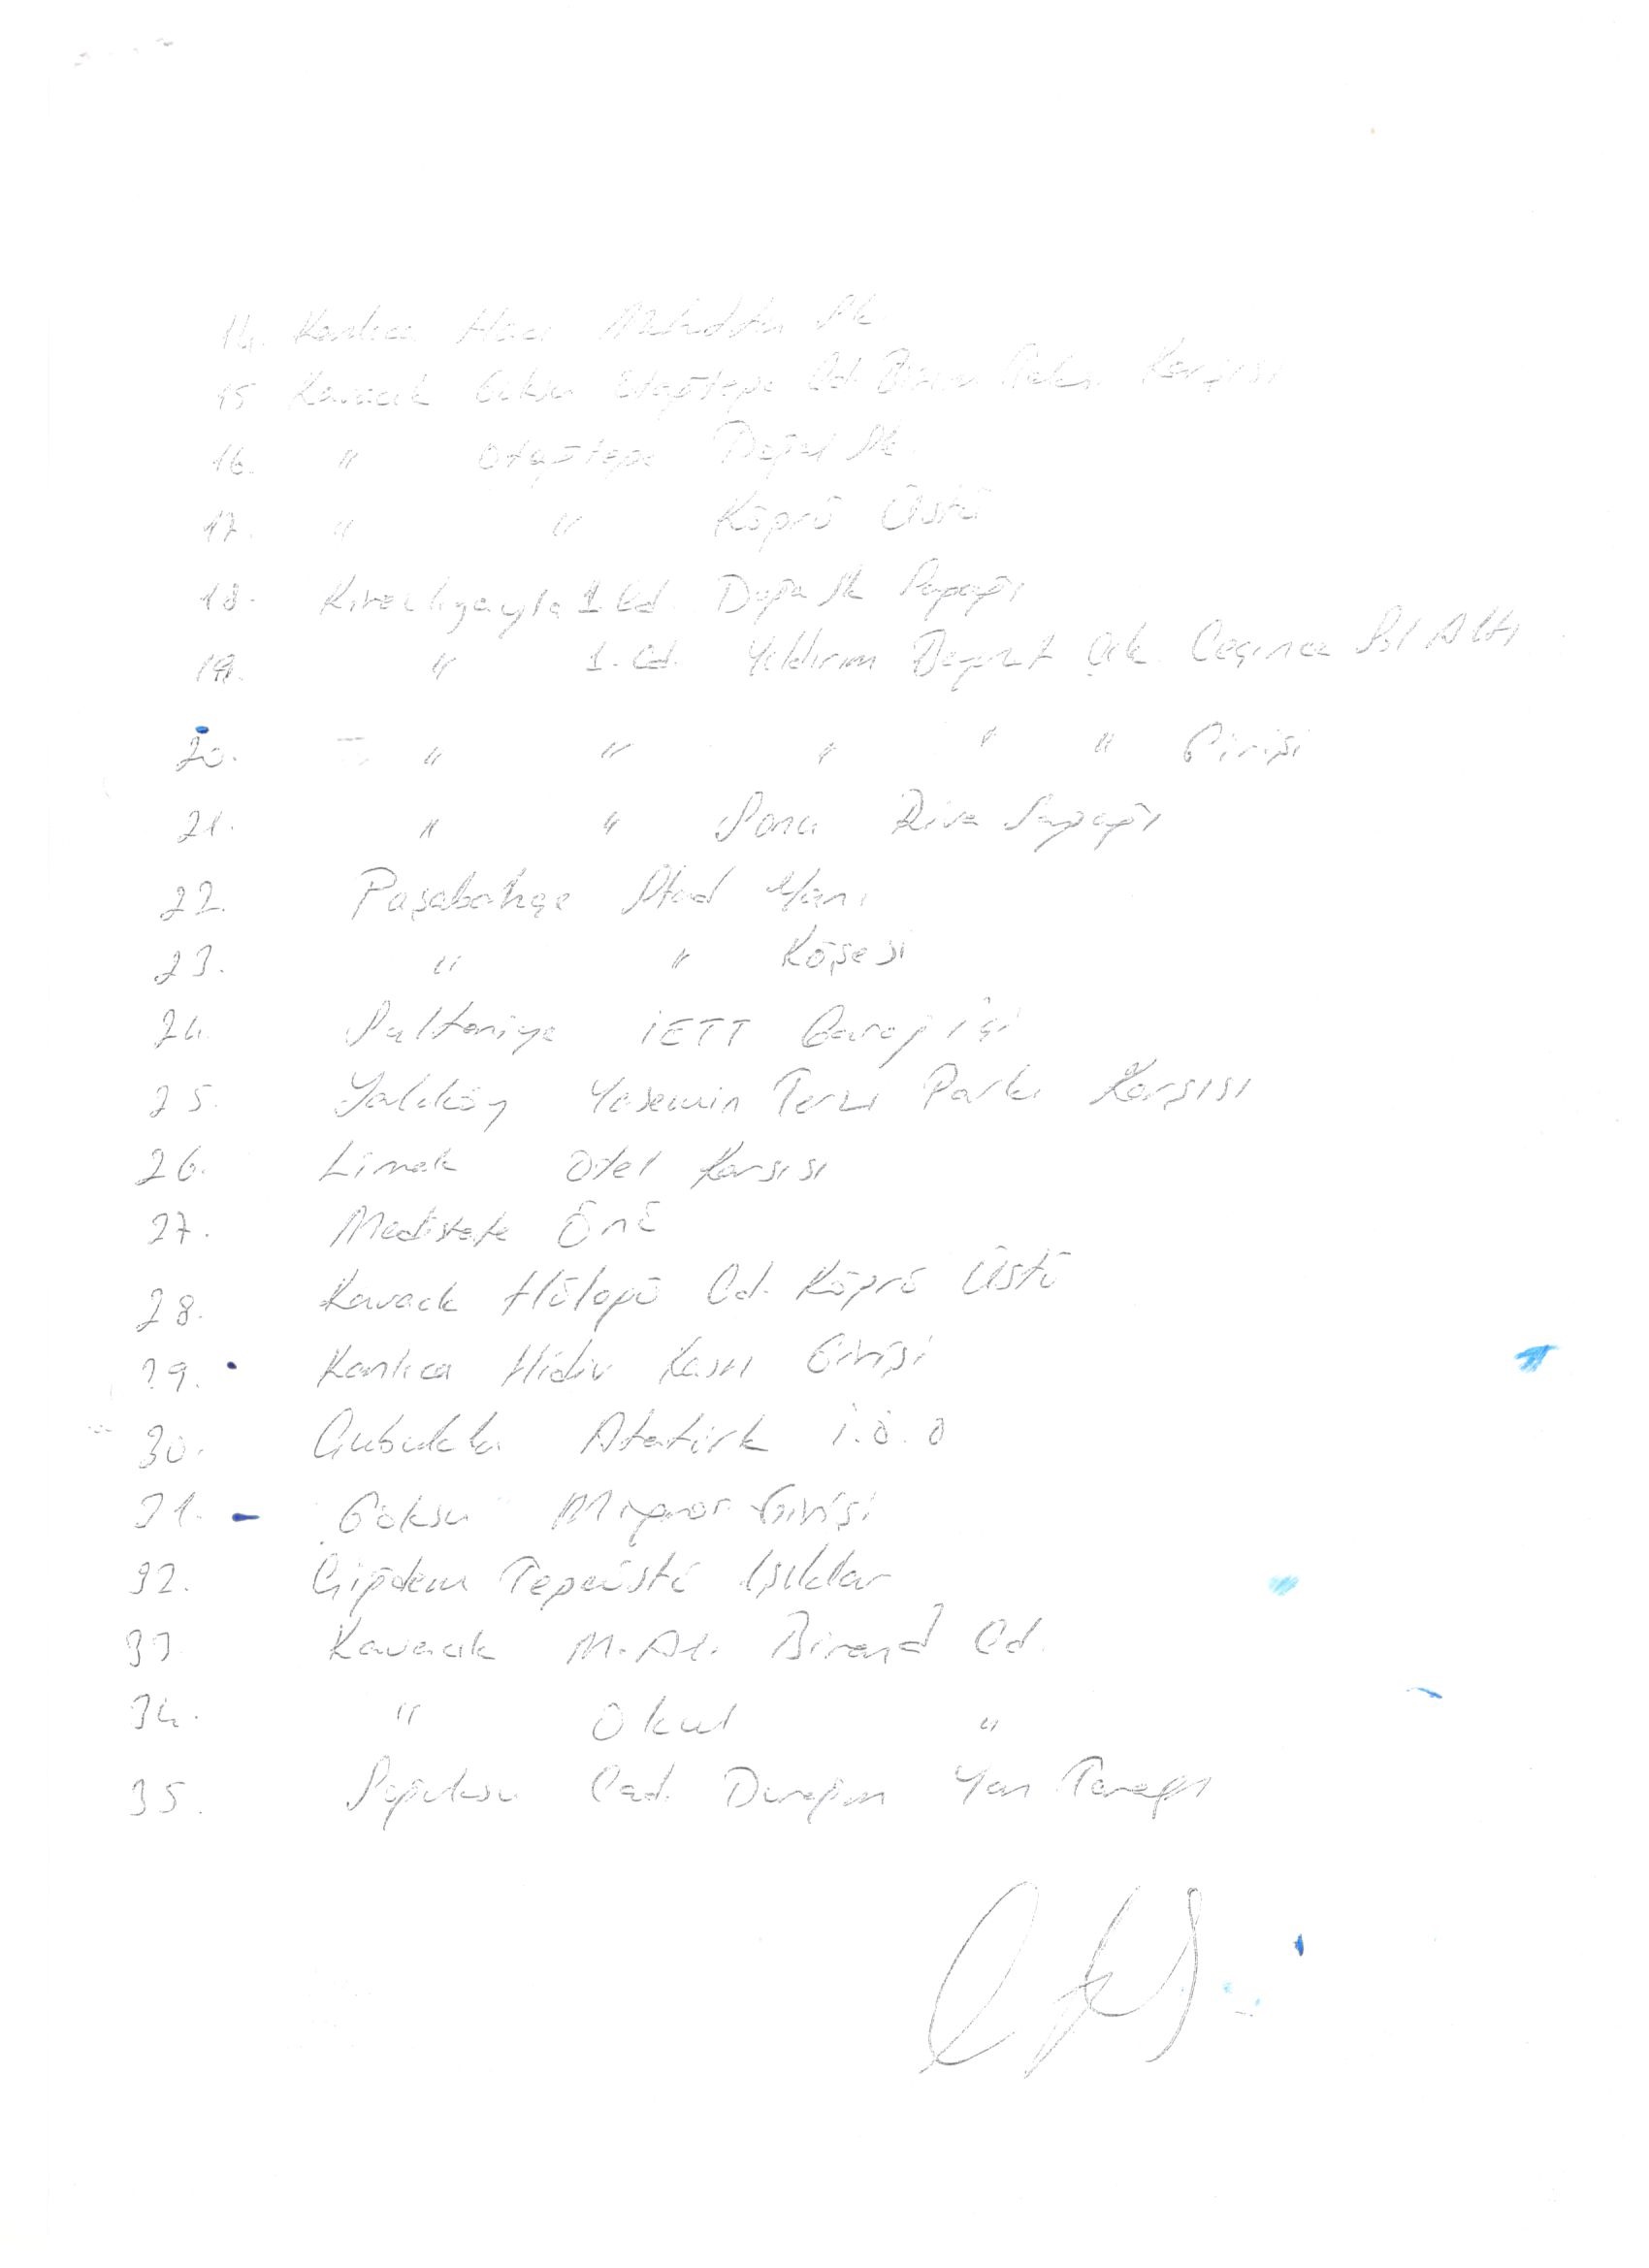 14. Kanlıca Hacı Muhittin Sk.
15 Kavacık Göksu Otağtepe Cd. Bizim Karşısı
16. " Otağtepe Doğal Sk.
17. " " Köprü Üstü
18. Kirazlıyayla 1. Cd. Doğa Sk Sapağı
19. " 1. Cd. Yıldırım Beyazıt Çık. Geçince Sol Altı
20. " " " " " Girişi
21. " " Sonu Riva Sapağı
22. Paşabahçe Stad Yanı
23. " " Köşesi
24. Sultaniye İETT Garaj içi
25. Yalıköy Yasemin Terzi Parkı Karşısı
26. Limak Otel Karşısı
27. Medistate Önü
28. Kavacık Hülagü Cd. Köprü Üstü
29. Kanlıca Hidiv Kasrı Girişi
30. Çubuklu Atatürk İ.Ö.O
31. Göksu Migros Girişi
32. Çiğdem Tepeüstü Işıklar
33 Kavacık M. Ali Birand Cd.
34. " Okul "
35. Soğuksu Cad. Durağın Yan Tarafı